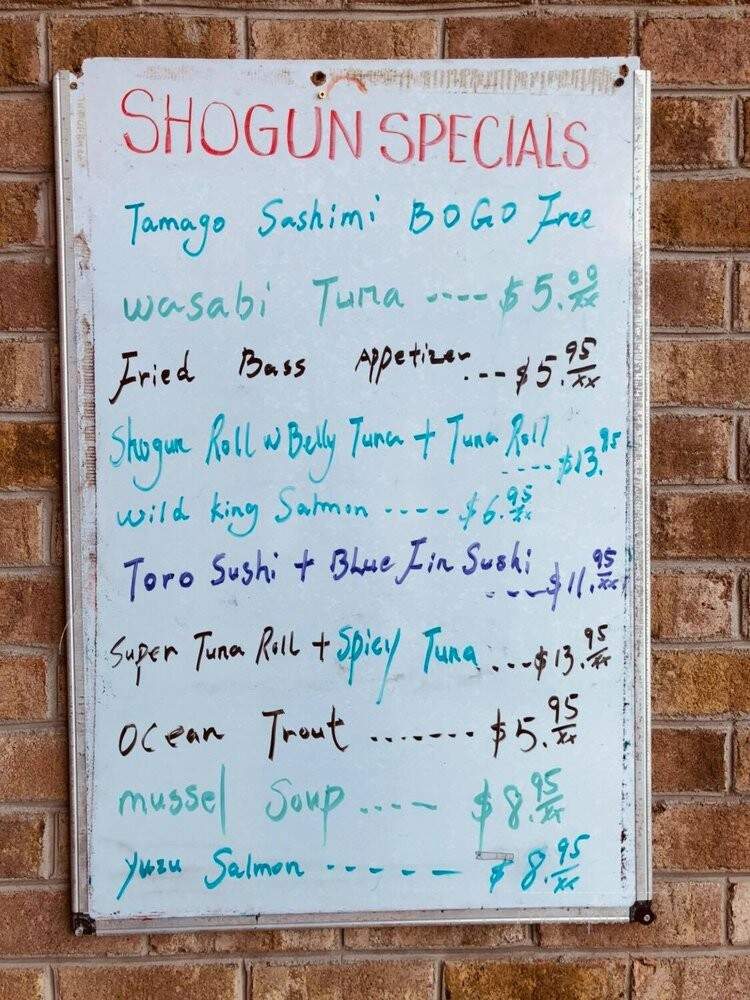 SHOGUN SPECIALS
Tamago Sashimi BOGO Free
wasabi Tuna ---- $5.99/xx
Fried Bass Appetizer ..-- $5.95/xx
Shogun Roll w Belly Tuna + Tuna Roll
---- $13.95
wild king Salmon ---- $6.95/xx
Toro Sushi + BLue Fin Sushi
---- $11.95/xx
Super Tuna Roll + Spicy Tuna ...-- $13.95/xx
Ocean Trout ....... $5.95/xx
mussel Soup ....-- $8.95/xx
Yuzu Salmon ------ $8.95/xx